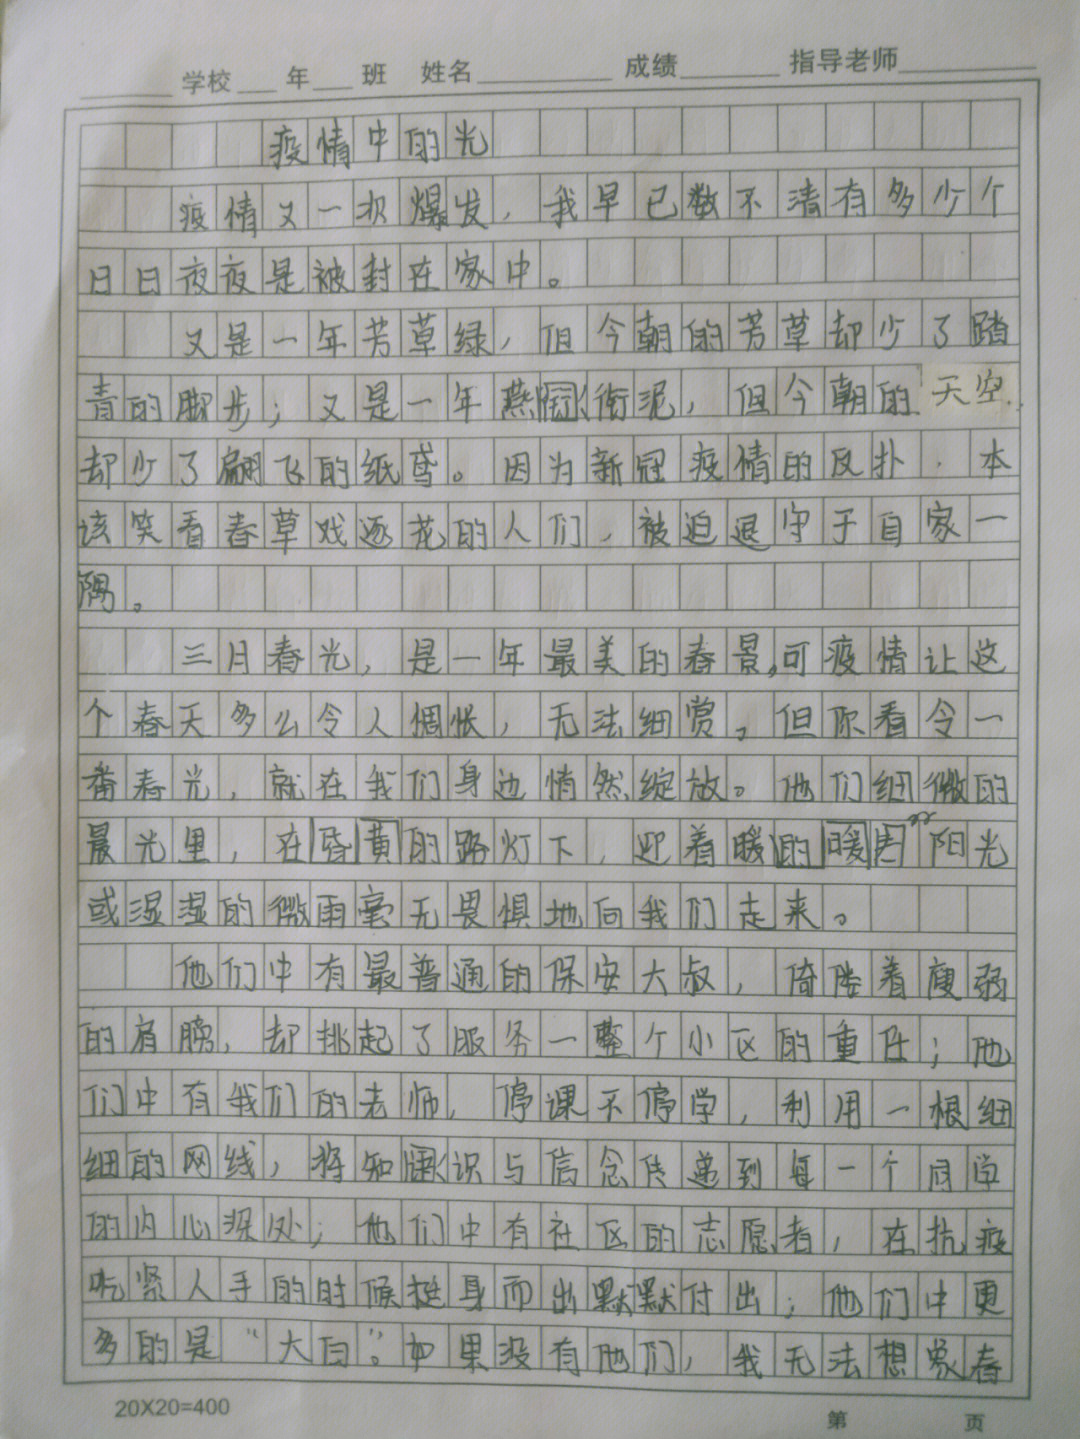 学校 年 班 姓名 成绩 指导老师
疫情中的光
疫情又一次爆发，我早已数不清有多少个
日日夜夜是被封在家中。
又是一年芳草绿，但今朝的芳草却少了踏
青的脚步；又是一年燕衔泥，但今朝的天空
却少了翩飞的纸鸢。因为新冠疫情的反扑，本
该笑看春草戏逐花的人们，被迫退守于自家一
隅。
三月春光，是一年最美的春景，可疫情让这
个春天多么令人惆怅，无法细赏。但你看令一
番春光，就在我们身边悄然绽放。他们细微的
晨光里，在昏黄的路灯下，迎着暖的暖阳光
或湿湿的微雨毫无畏惧地向我们走来。
他们中有最普通的保安大叔，倚陸着瘦弱
的肩膀，却挑起了服务一整个小区的重任；他
们中有我们的老师，停课不停学，利用一根细
细的网线，将知识与信念传递到每一个同学
的内心深处；他们中有社区的志愿者，在抗疫
吃紧人手的时候挺身而出默默付出；他们中更
多的是“大白”。如果没有他们，我无法想象春
20X20=400
第 页